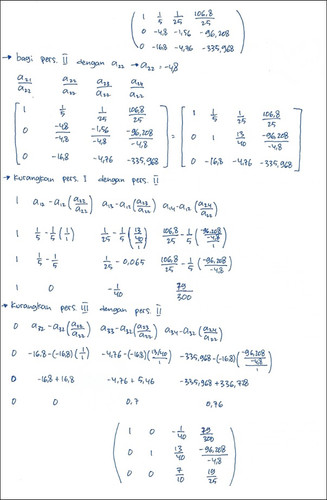 1 1/5 1/25 106,8/25
0 -4,8 -1,56 -96,208
0 -16,8 -4,76 -335,968
→ bagi pers. II dengan a22 → a22 = -4,8
a21/a22 a22/a22 a23/a22 a24/a22
1 1/5 1/25 106,8/25 = 1 1/5 1/25 106,8/25
0 -4,8/-4,8 -1,56/-4,8 -96,208/-4,8 0 1 13/40 -96,208/-4,8
0 -16,8 -4,76 -335,968 0 -16,8 -4,76 -335,968
→ Kurangkan pers. I dengan pers. II
1 a12-a12(a22/a22) a13-a12(a23/a22) a14-a12(a24/a22)
1 1/5-1/5(1/1) 1/25-1/5(13/40/1) 106,8/25-1/5(-96,208/-4,8/1)
1 1/5-1/5 1/25-0,065 106,8/25-1/5(-96,208/-4,8)
1 0 -1/40 79/300
→ Kurangkan pers. III dengan pers. II
0 a32-a32(a22/a22) a33-a32(a23/a22) a34-a32(a24/a22)
0 -16,8-(-16,8)(1/1) -4,76-(-16,8)(13/40/1) -335,968-(-16,8)(-96,208/-4,8/1)
0 -16,8+16,8 -4,76+5,46 -335,968+336,728
0 0 0,7 0,76
1 0 -1/40 79/300
0 1 13/40 -96,208/-4,8
0 0 7/10 19/25